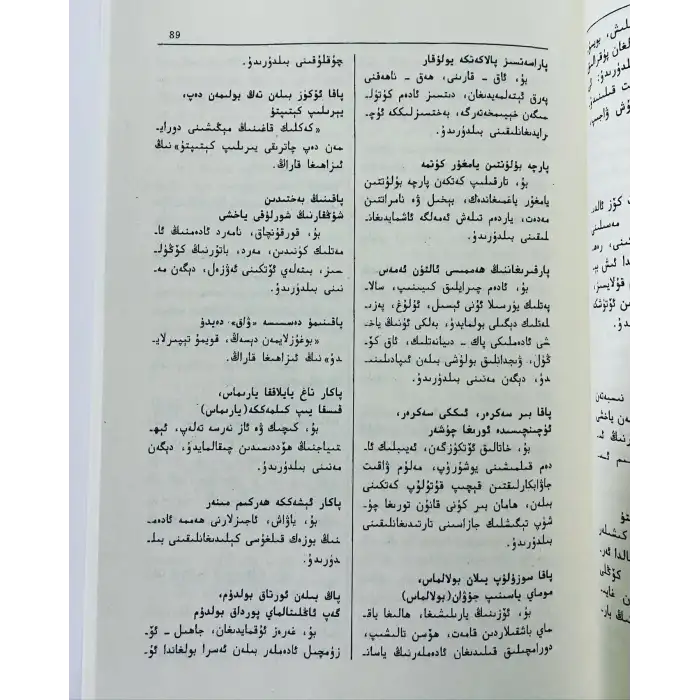 89
پاراسەتسىز پالاكەتكە يولۇقار
بۇ، ئاق - قارىنى، ھەق - ناھەقنى
پەرق ئېتەلمەيدىغان، دىتسىز ئادەم كۈتۈل-
مىگەن خېيىمخەتەرگە، بەختسىزلىككە ئۇچ-
رايدىغانلىقىنى بىلدۈرىدۇ.
پارچە بۇلۇتتىن يامغۇر كۈتمە
بۇ، تارقىلىپ كەتكەن پارچە بۇلۇتتىن
يامغۇر ياغمىغاندەك، بېخىل ۋە نامراتتىن
مەدەت، ياردەم تىلەش ئەمەلگە ئاشمايدىغان-
لىقىنى بىلدۈرىدۇ.
پارقىرىغاننىڭ ھەممىسى ئالتۇن ئەمەس
بۇ، ئادەم چىرايلىق كىيىنىپ، سالا-
پەتلىك يۈرسىلا ئۇنى ئېسىل، ئۇلۇغ، پەزى-
لەتلىك دېگىلى بولمايدۇ، بەلكى ئۇنىڭ ياخ-
شى ئادەملىكى پاك - دىيانەتلىك، ئاق كۆ-
ڭۈل، ۋىجدانلىق بولۇشى بىلەن ئىپادىلىنى-
دۇ، دېگەن مەنىنى بىلدۈرىدۇ.
پاقا بىر سەكرەر، ئىككى سەكرەر،
ئۈچىنچىسىدە ئورىغا چۈشەر
بۇ، خاتالىق ئۆتكۈزگەن، ئەيىبلىك ئا-
دەم قىلمىشىنى يوشۇرۇپ، مەلۇم ۋاقىت
جاۋابكارلىقتىن قېچىپ قۇتۇلۇپ كەتكىنى
بىلەن، ھامان بىر كۈنى قانۇن تورىغا چۈ-
شۈپ تېگىشلىك جازاسىنى تارتىدىغانلىقىنى
بىلدۈرىدۇ.
پاقا سوزۇلۇپ يىلان بولالماس،
موماي ياسىنىپ جۇۋان(بولالماس)
بۇ، ئۆزىنىڭ يارىلىشىغا، ھالىغا باق-
ماي باشقىلاردىن قامەت، ھۆسن تالىشىپ،
دورامچىلىق قىلىدىغان ئادەملەرنىڭ ياسان-
چۇقلۇقىنى بىلدۈرىدۇ.
پاقا ئۆكۈز بىلەن تەڭ بولىمەن دەپ،
يېرىلىپ كېتىپتۇ
«كەكلىك قاغىنىڭ مېڭىشىنى دوراي-
مەن دەپ چاترىقى يىرىلىپ كېتىپتۇ»نىڭ
ئىزاھىغا قاراڭ.
پاقىنىڭ بەختىدىن
شۇڭقارنىڭ شورلۇقى ياخشى
بۇ، قورقۇنچاق، نامەرد ئادەمنىڭ ئا-
مەتلىك كۈنىدىن، مەرد، باتۇرنىڭ كۆڭۈل-
سىز، بىتەلەي ئۆتكىنى ئەۋزەل، دېگەن مە-
نىنى بىلدۈرىدۇ.
پاقىنىمۇ دەسسىسە «ۋاق» دەيدۇ
«بوغۇزلايمەن دېسەڭ، قويمۇ تىپىرلاي-
دۇ»نىڭ ئىزاھىغا قاراڭ.
پاكار تاغ يايلاققا يارىماس،
قىسقا يىپ كىلمەككە(يارىماس)
بۇ، كىچىك ۋە ئاز نەرسە تەلەپ، ئېھ-
تىياجنىڭ ھۆددىسىدىن چىقالمايدۇ، دېگەن
مەنىنى بىلدۈرىدۇ.
پاكار ئېشەككە ھەركىم مىنەر
بۇ، ياۋاش، ئاجىزلارنى ھەممە ئادەم-
نىڭ بوزەك قىلغۇسى كېلىدىغانلىقىنى بىل-
دۈرىدۇ.
پاڭ بىلەن ئورتاق بولدۇم،
گەپ ئاڭلىتالماي پورداق بولدۇم
بۇ، غەرەز ئۇقمايدىغان، جاھىل - ئۆ-
زۈمچىل ئادەملەر بىلەن ئەسرا بولغاندا ئۇ-